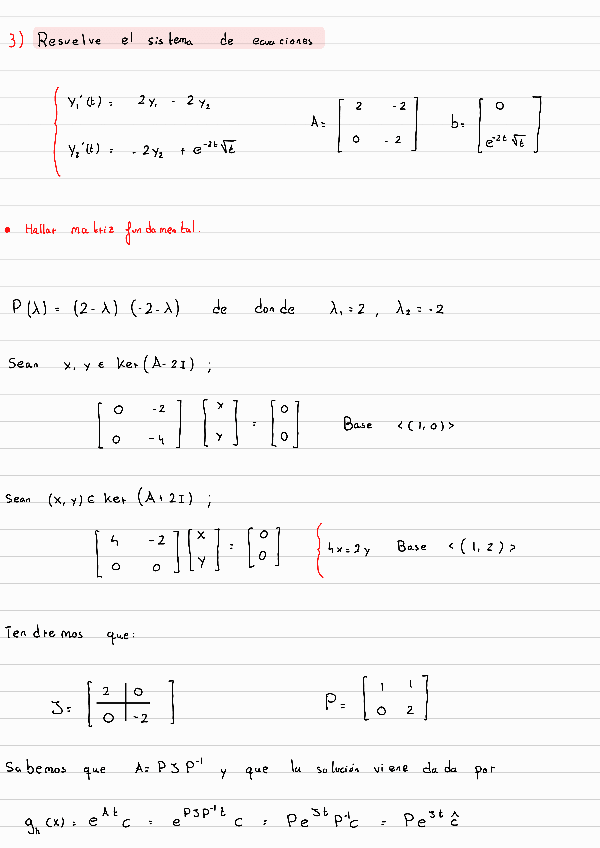 3) Resuelve el sistema de ecuaciones
y₁'(t) = 2y₁ - 2y₂
A = [ 2 -2 ; 0 -2 ] b = [ 0 ; e^{-2t} √t ]
y₂'(t) = -2y₂ + e^{-2t} √t
• Hallar matriz fundamental.
P(λ) = (2-λ) (-2-λ) de donde λ₁ = 2 , λ₂ = -2
Sean x, y ∈ ker (A - 2I) ;
[ 0 -2 ; 0 -4 ] [ x ; y ] = [ 0 ; 0 ] Base <(1,0)>
Sean (x,y) ∈ ker (A + 2I) ;
[ 4 -2 ; 0 0 ] [ x ; y ] = [ 0 ; 0 ] { 4x = 2y Base <(1,2)>
Tendremos que:
J = [ 2 0 ; 0 -2 ] P = [ 1 1 ; 0 2 ]
Sabemos que A = PJP⁻¹ y que la solución viene dada por
g_h(x) = e^{At} c = e^{PJP⁻¹t} c = Pe^{Jt} P⁻¹c = Pe^{Jt} ĉ